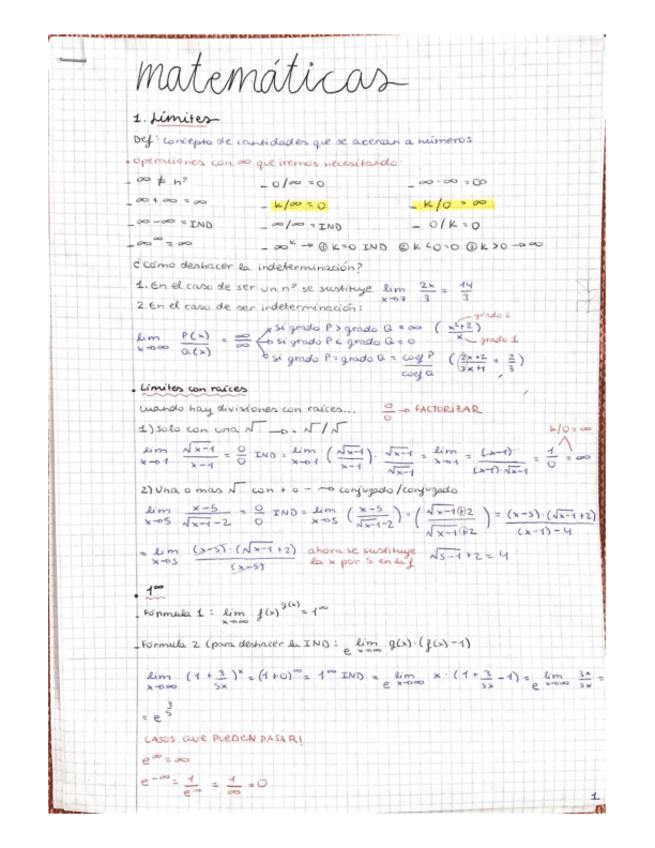 matemáticas
1. Límites
Def: concepto de cantidades que se acercan a números
• Operaciones con ∞ que iremos necesitando:
- ∞ ≠ nº - 0/∞ = 0 - ∞·∞ = ∞
- ∞ + ∞ = ∞ - k/∞ = 0 - k/0 = ∞
- ∞ - ∞ = IND - ∞/∞ = IND - 0/k = 0
- ∞^∞ = ∞ - ∞^k → ① k=0 IND ② k<0=0 ③ k>0 → ∞
¿Cómo deshacer la indeterminación?
1. En el caso de ser un nº se sustituye lim x→7 2x/3 = 14/3
2. En el caso de ser indeterminación:
grado 2
si grado P > grado Q = ∞ (x²+2/x)
grado 1
lim x→∞ P(x)/Q(x) = ∞/∞ si grado P < grado Q = 0
si grado P = grado Q = coef P/coef Q (2x+2/3x+1 = 2/3)
• Límites con raíces
Cuando hay divisiones con raíces... 0/0 → FACTORIZAR
1) Solo con una √ → · √/√ k/0 = ∞
lim x→1 √x-1/x-1 = 0/0 IND = lim x→1 (√x-1/x-1) · √x-1/√x-1 = lim x→1 (x-1)/(x-1)·√x-1 = 1/0 = ∞
2) Una o mas √ con + o - → conjugado/conjugado
lim x→5 x-5/√x-1-2 = 0/0 IND = lim x→5 (x-5/√x-1-2) · (√x-1+2/√x-1+2) = (x-5)·(√x-1+2)/(x-1)-4
= lim x→5 (x-5)·(√x-1+2)/(x-5) ahora se sustituye la x por 5 en la f √5-1+2 = 4
• 1^∞
- Fórmula 1: lim x→∞ f(x)^g(x) = 1^∞
- Fórmula 2 (para deshacer la IND: e^lim x→∞ g(x)·(f(x)-1)
lim x→∞ (1+3/5x)^x = (1+0)^∞ = 1^∞ IND = e^lim x→∞ x·(1+3/5x-1) = e^lim x→∞ 3x/5x =
= e^3/5
CASOS QUE PUEDEN PASAR!
e^∞ = ∞
e^-∞ = 1/e^∞ = 1/∞ = 0
1